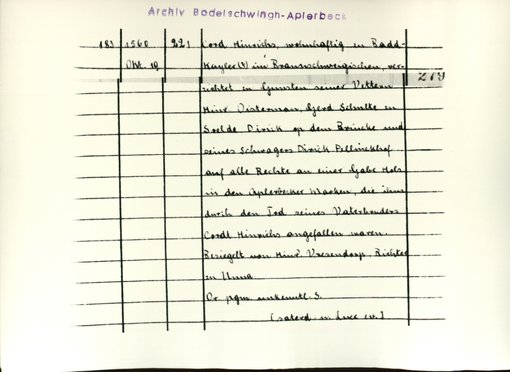 Archiv Bodelschwingh-Aplerbeck
183 1560 221 Cord Hinrichs, wohnhaftig zu Badd-
Okt. 19 Kayler(?) im Braunschweigischen, ver-
279
zichtet zu Gunsten seiner Vettern
Hinr. Oisterman, Gerd Schulte zu
Soelde Dirick op dem Brincke und
seines Schwagers Dirick
auf alle Rechte an einer Gabe Holz
in den Aplerbecker Marken, die ihm
durch den Tod seines Vaterbruders
Cordt Hinrichs angefallen waren.
Besiegelt von Hinr. Vresendorp, Richter
zu Unna
Or. pgm. S.